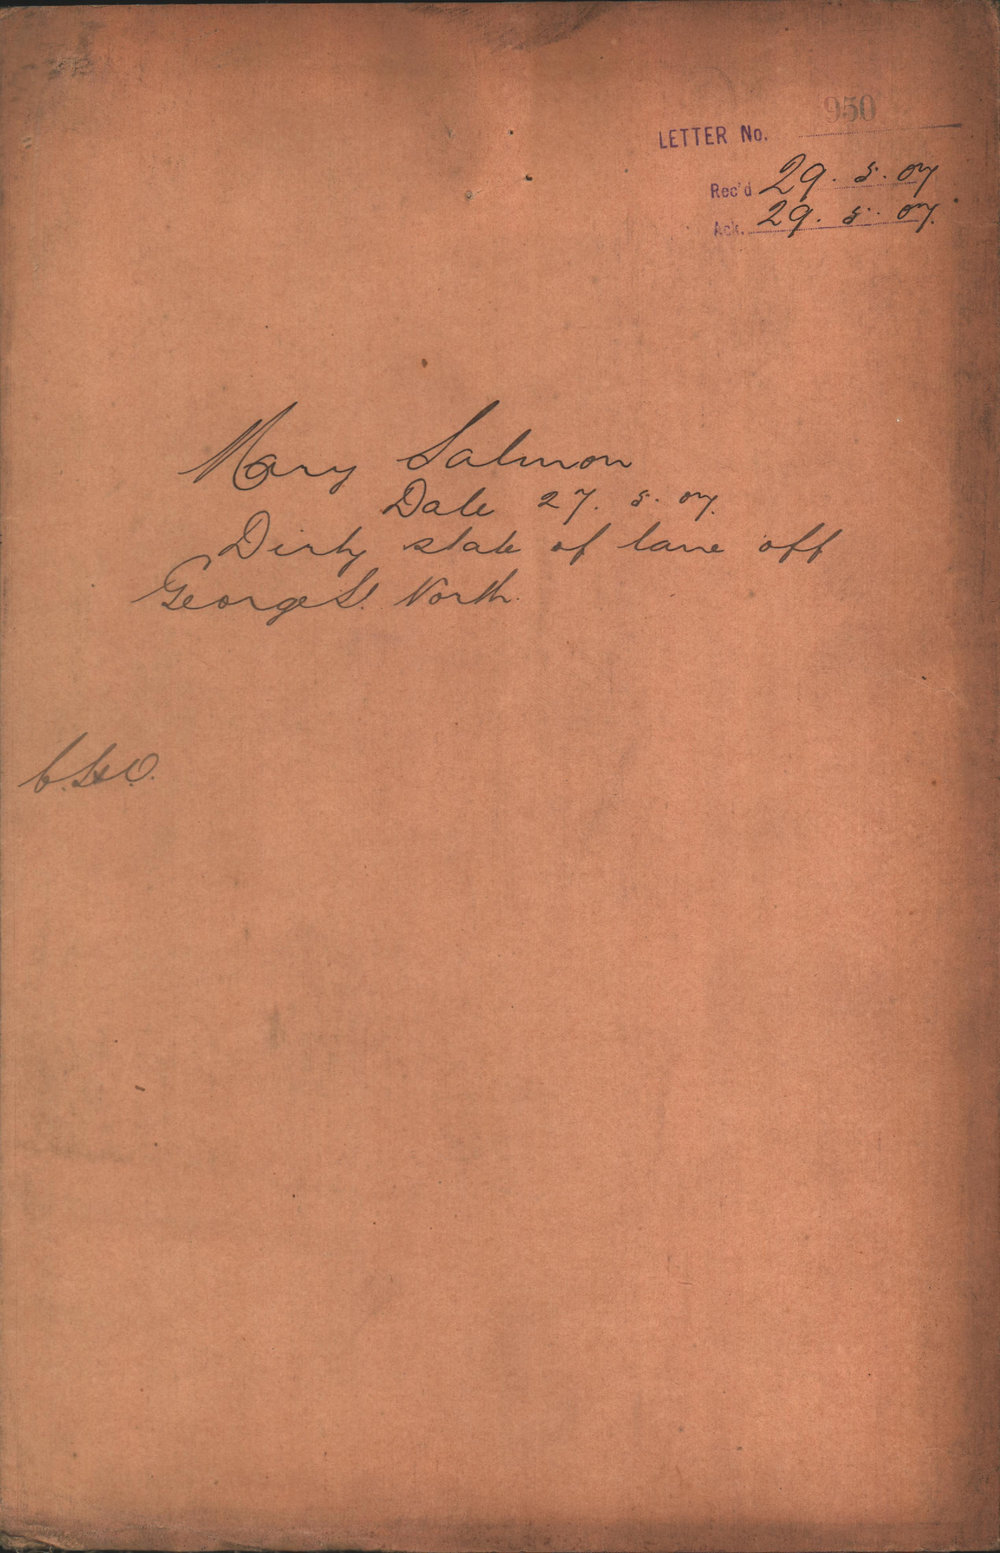 LETTER No. 950
Rec'd 29. 5. 07
Ack. 29. 5. 07.
Mary Salmon
Date 27. 5. 07.
Dirty state of lane off
George St. North.